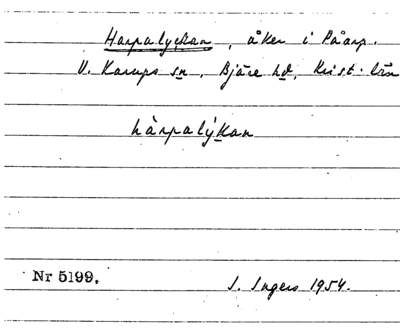 Harpalyckan, åker i Påarp.
V. Karups sn, Bjäre hd, Krist. län
hàrpalýkan
Nr 5199.
I. Ingers 1954.